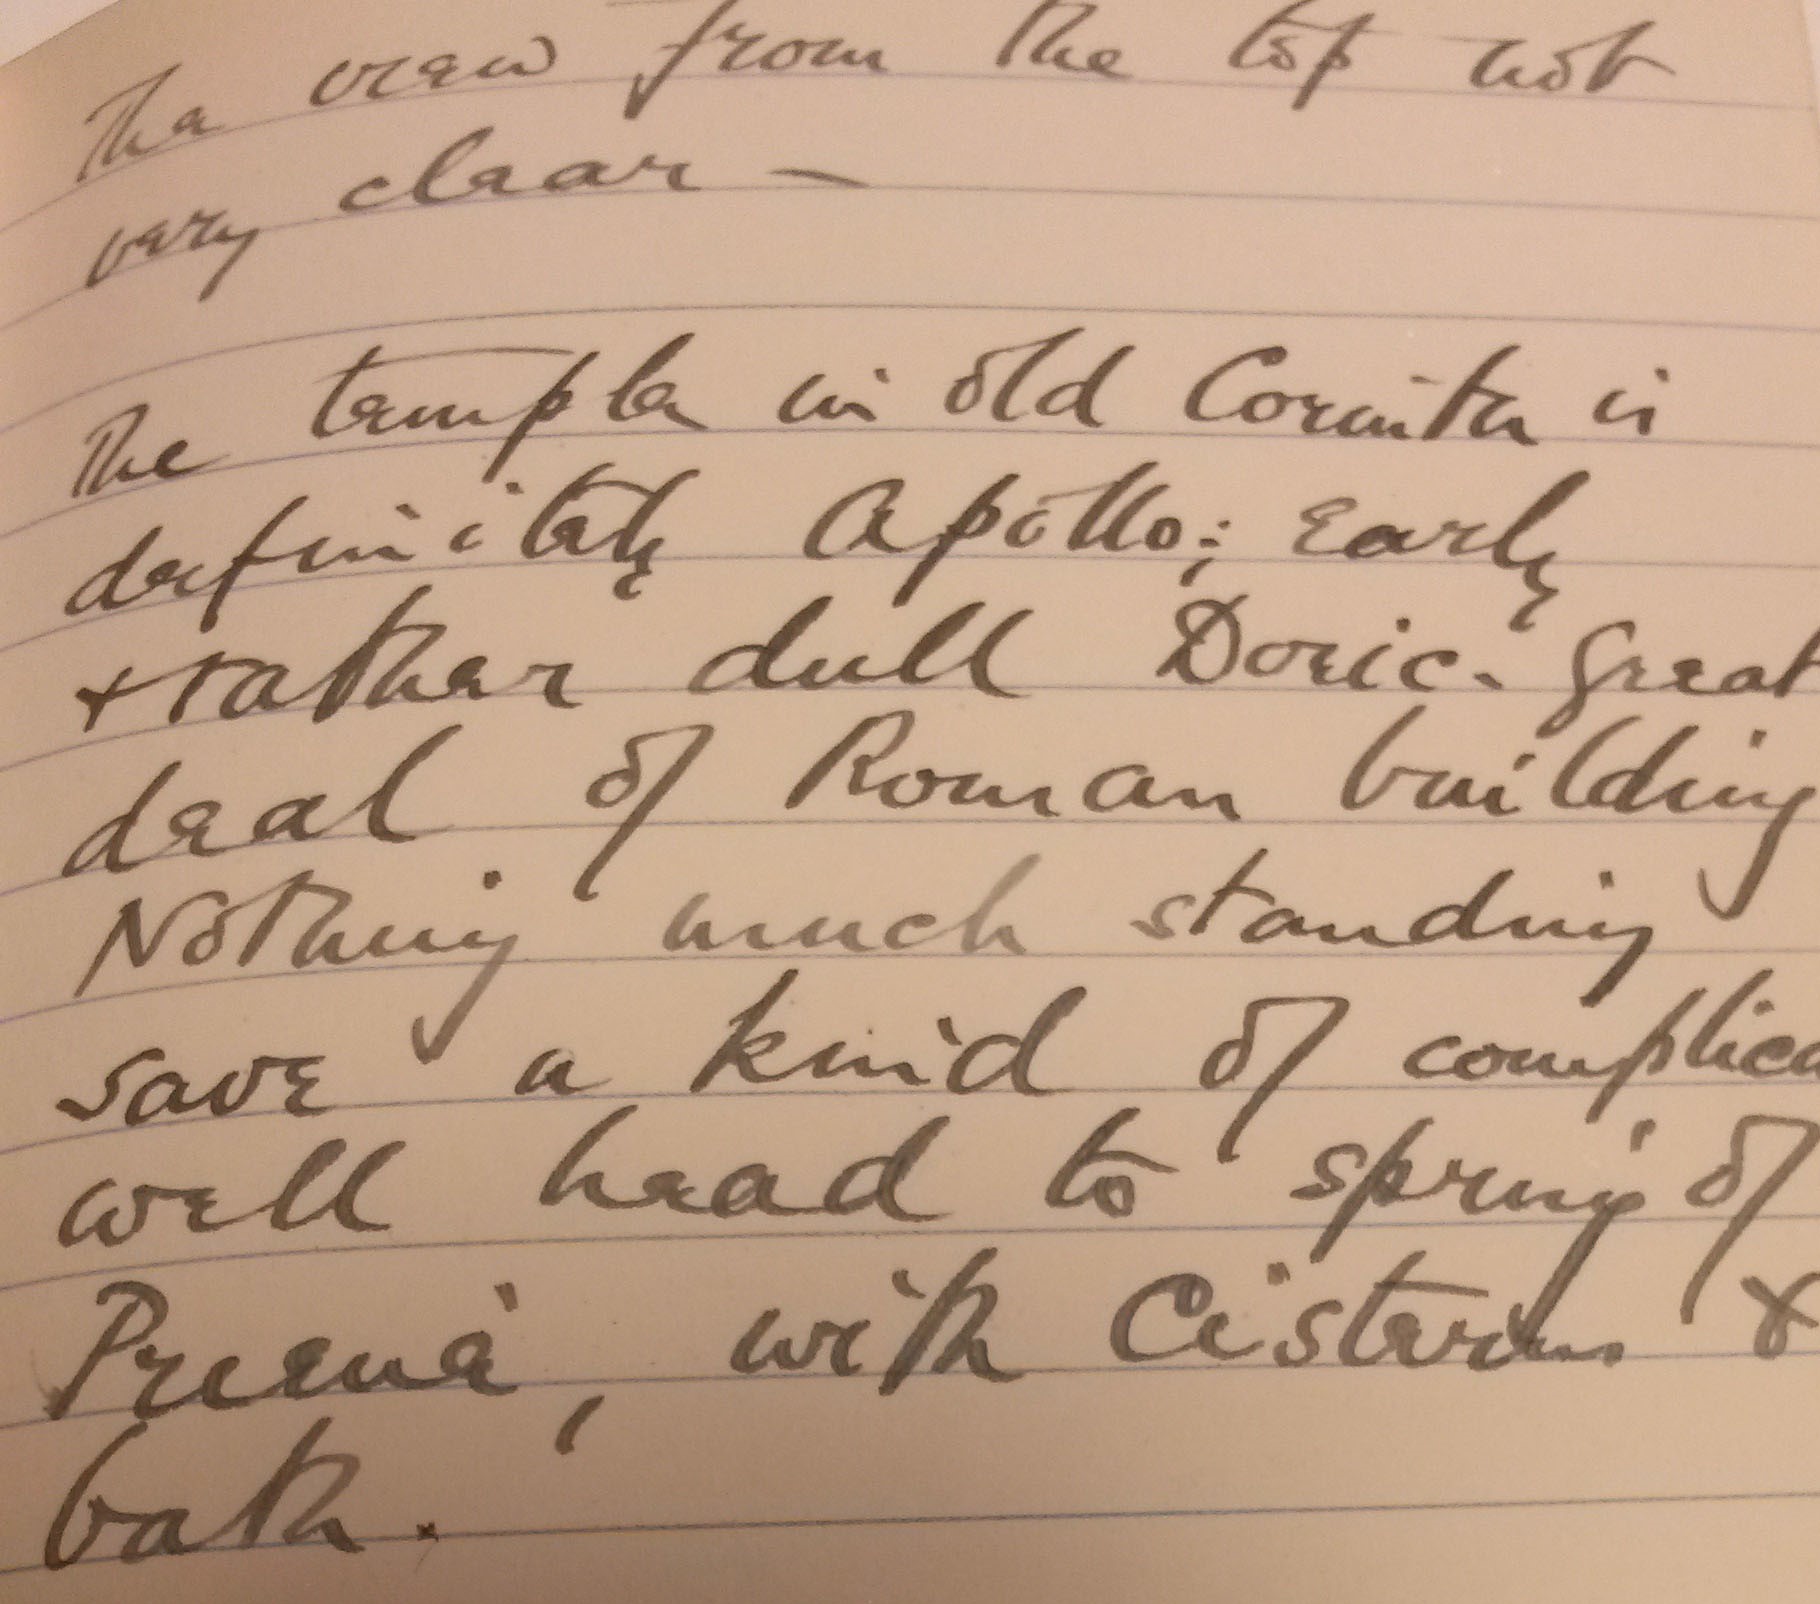 The view from the top not
very clear —
The temple in old Corinth is
definitely Apollo; early
+ rather dull Doric. Great
deal of Roman building
Nothing much standing
save a kind of complica
well head to spring of
with Cisterns &
bath.